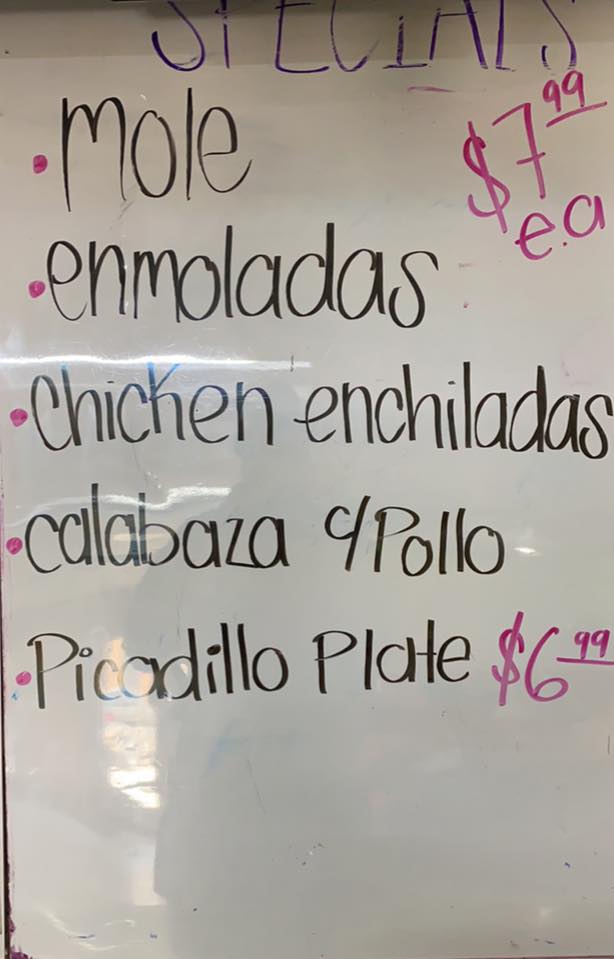 SPECIALS
• Mole $7.99 e.a
• enmoladas
• Chicken enchiladas
• calabaza c/Pollo
• Picadillo Plate $6.99